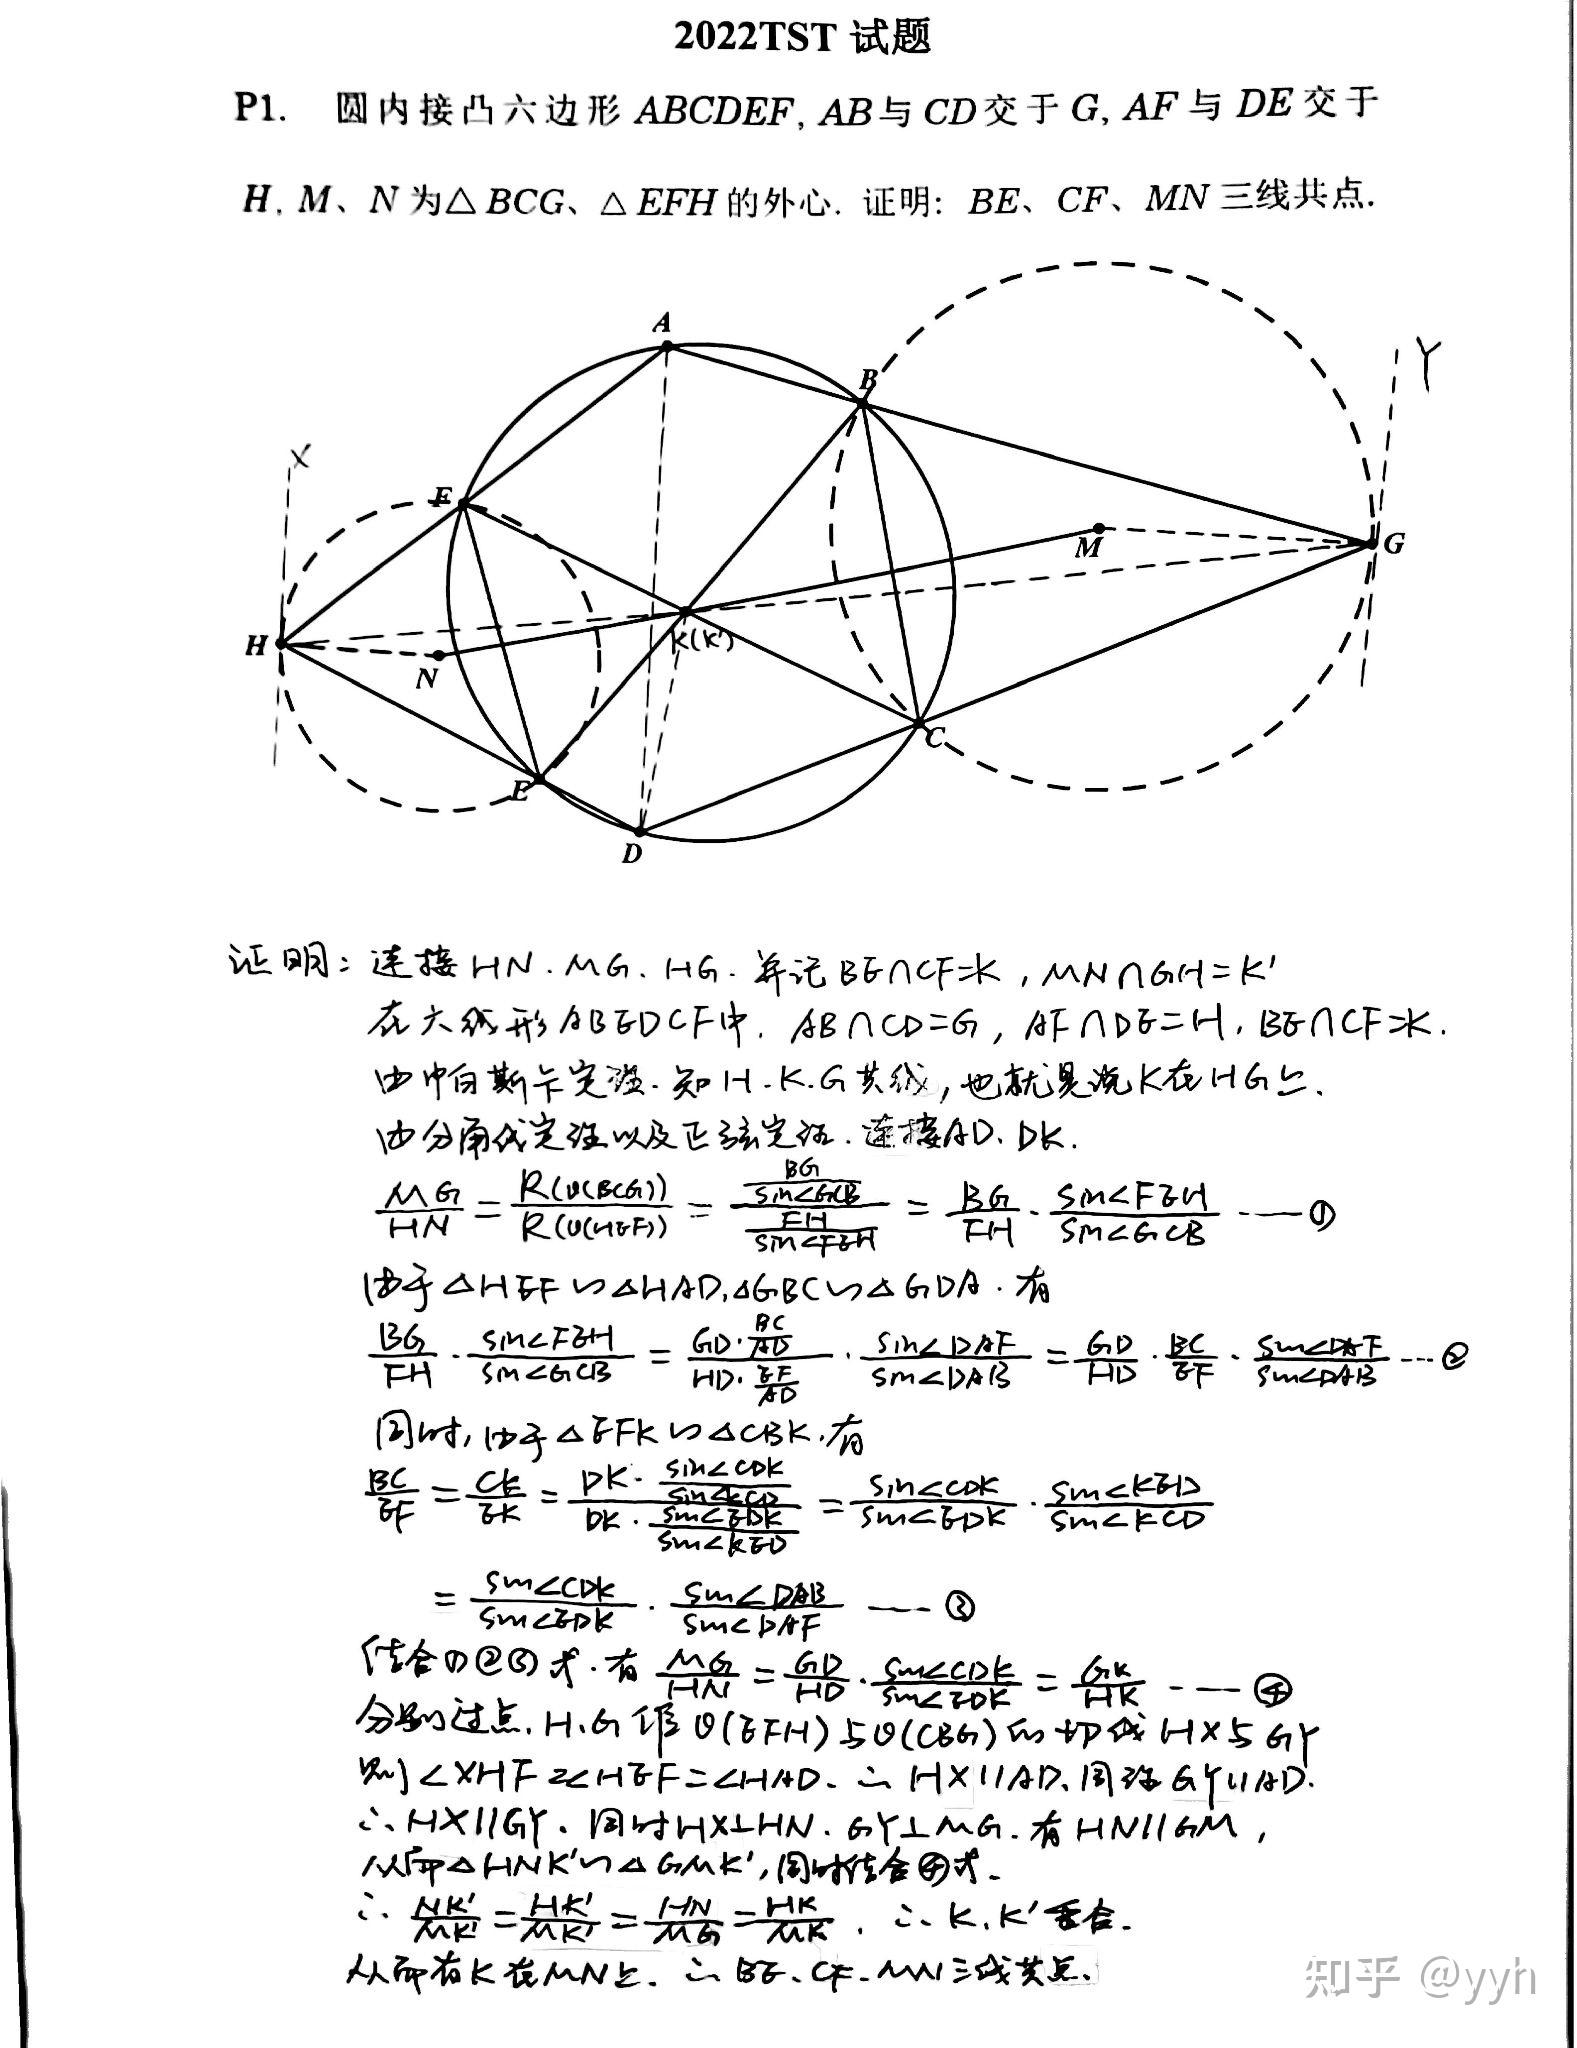 2022TST 试题
P1. 圆内接凸六边形 ABCDEF, AB与 CD交于 G, AF 与 DE 交于
H. M、N 为△BCG、△EFH 的外心. 证明: BE、CF、MN 三线共点.
A
B
Y
X
F
M
G
H
K(K')
N
C
E
D
证明: 连接HN. MG. HG. 并记BE∩CF=K, MN∩GH=K'
在六线形ABEDCF中. AB∩CD=G, AF∩DE=H. BE∩CF=K.
由帕斯卡定理. 知H.K.G共线, 也就是说K在HG上.
由分角线定理以及正弦定理. 连接AD、DK.
MG/HN = R(⊙(BCG))/R(⊙(HEF)) = (BG/sin∠GCB)/(FH/sin∠FEH) = BG/FH · sin∠FEH/sin∠GCB ——①
由于△HEF∽△HAD, △GBC∽△GDA. 有
BG/FH · sin∠FEH/sin∠GCB = (GD·BC/AD)/(HD·EF/AD) · sin∠DAF/sin∠DAB = GD/HD · BC/EF · sin∠DAF/sin∠DAB ---②
同时, 由于△EFK∽△CBK. 有
BC/EF = CK/EK = (DK·sin∠CDK/sin∠KCD)/(DK·sin∠EDK/sin∠KED) = sin∠CDK/sin∠EDK · sin∠KED/sin∠KCD
= sin∠CDK/sin∠EDK · sin∠DAB/sin∠DAF ——③
结合①②③式. 有 MG/HN = GD/HD · sin∠CDK/sin∠EDK = GK/HK ——④
分别过点.H.G作⊙(EFH)与⊙(CBG)的切线HX与GY
则∠XHF=∠HEF=∠HAD. ∴ HX∥AD. 同理GY∥AD.
∴HX∥GY. 同时HX⊥HN. GY⊥MG. 有HN∥GM,
从而△HNK'∽△GMK', 同时结合④式.
∴ NK'/MK' = HK'/MK' = HN/MG = HK/MK. ∴ K.K'重合.
从而有K在MN上. ∴ BE、CF、MN三线共点.
知乎 @yyh